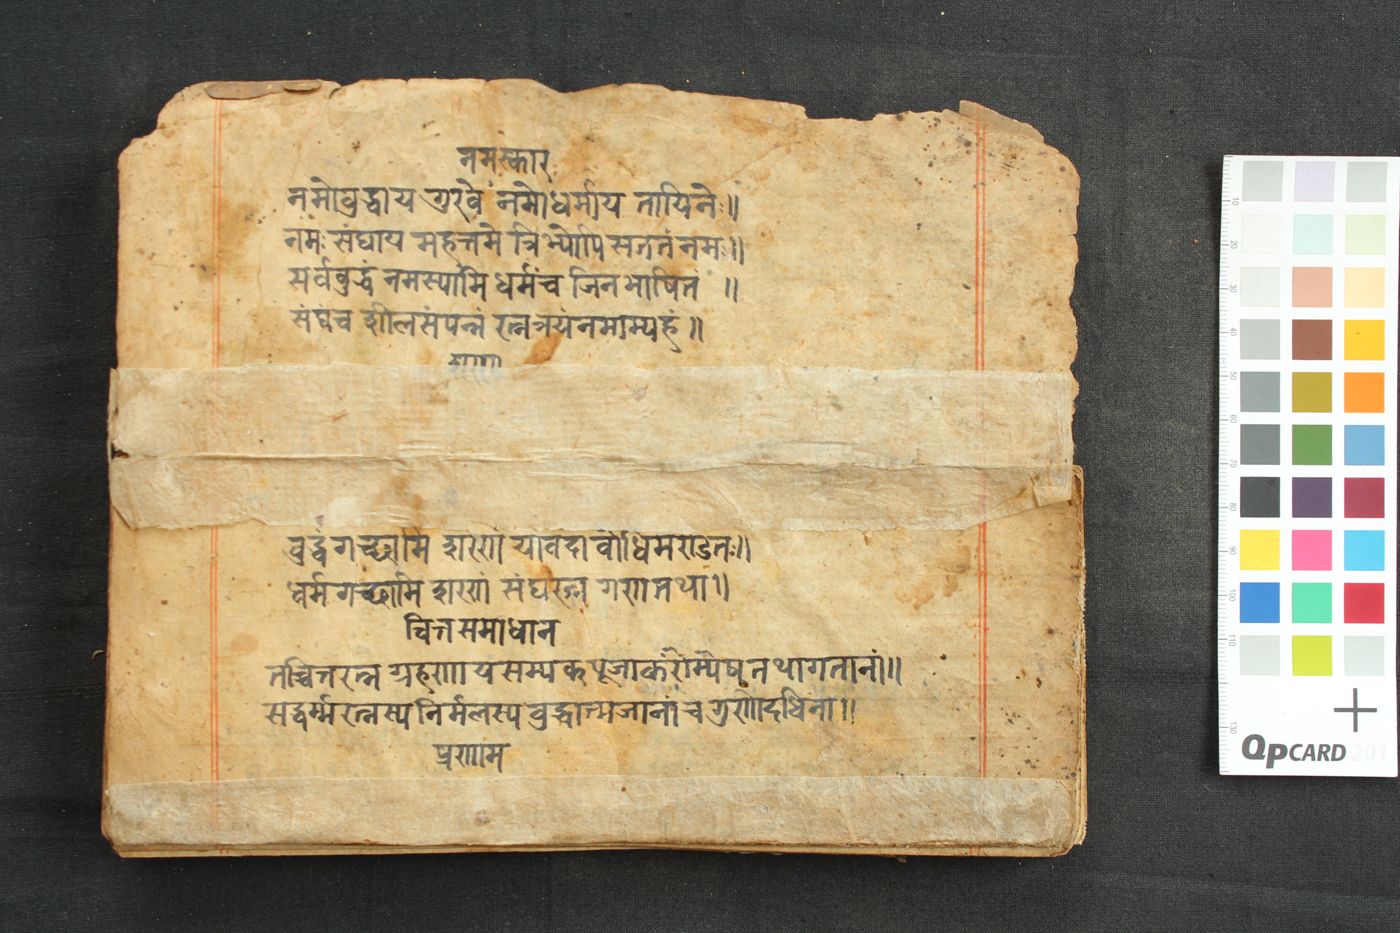 नमस्कार
नमोबुद्धाय गुरवे नमोधर्माय तायिने ॥
नमः संघाय महत्तमे त्रिभ्योपि सततं नमः॥
सर्वबुद्धं नमस्यामि धर्मंच जिनभाषितं ॥
संघंच शीलसंपन्नं रत्नत्रयंनमाम्यहं॥
बुद्धंगच्छामि शरणं यावदा बोधिमण्डतः॥
धर्मंगच्छामि शरणं संघरत्न गणंतथा॥
चित्त समाधान
तच्चित्तरत्न ग्रहणाय सम्यक पूजाकरोम्येष तथागतानां॥
सद्धर्म्मरत्नस्य निर्मलस्य बुद्धात्मजानां च गुणोदधिनां॥
प्रणाम
QPCARD 201
10
20
30
40
50
60
70
80
90
100
110
130